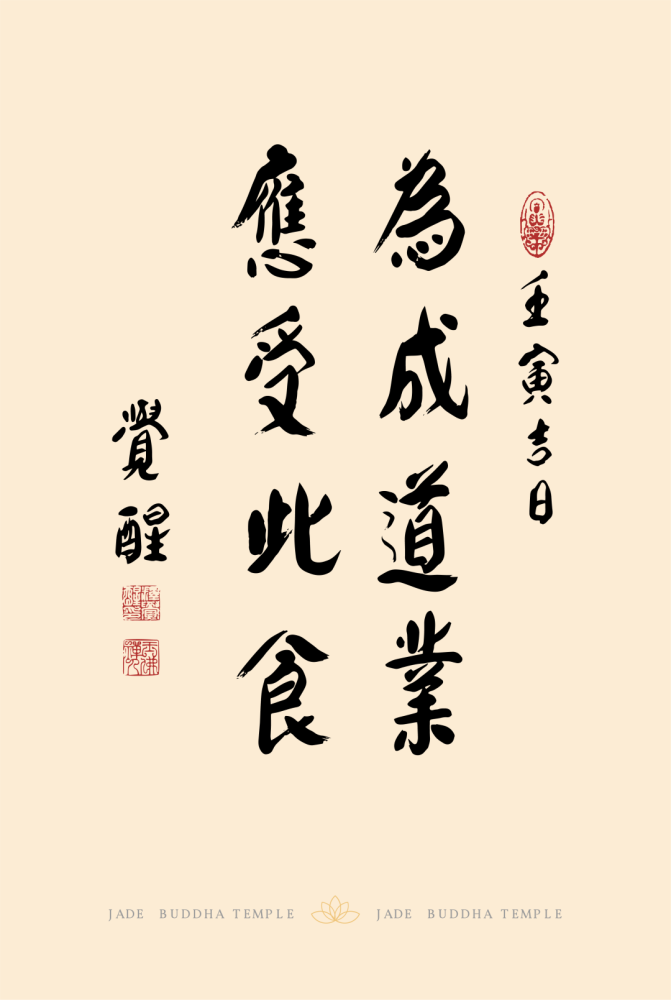 壬寅吉日
為成道業
應受此食
覺醒
JADE BUDDHA TEMPLE JADE BUDDHA TEMPLE